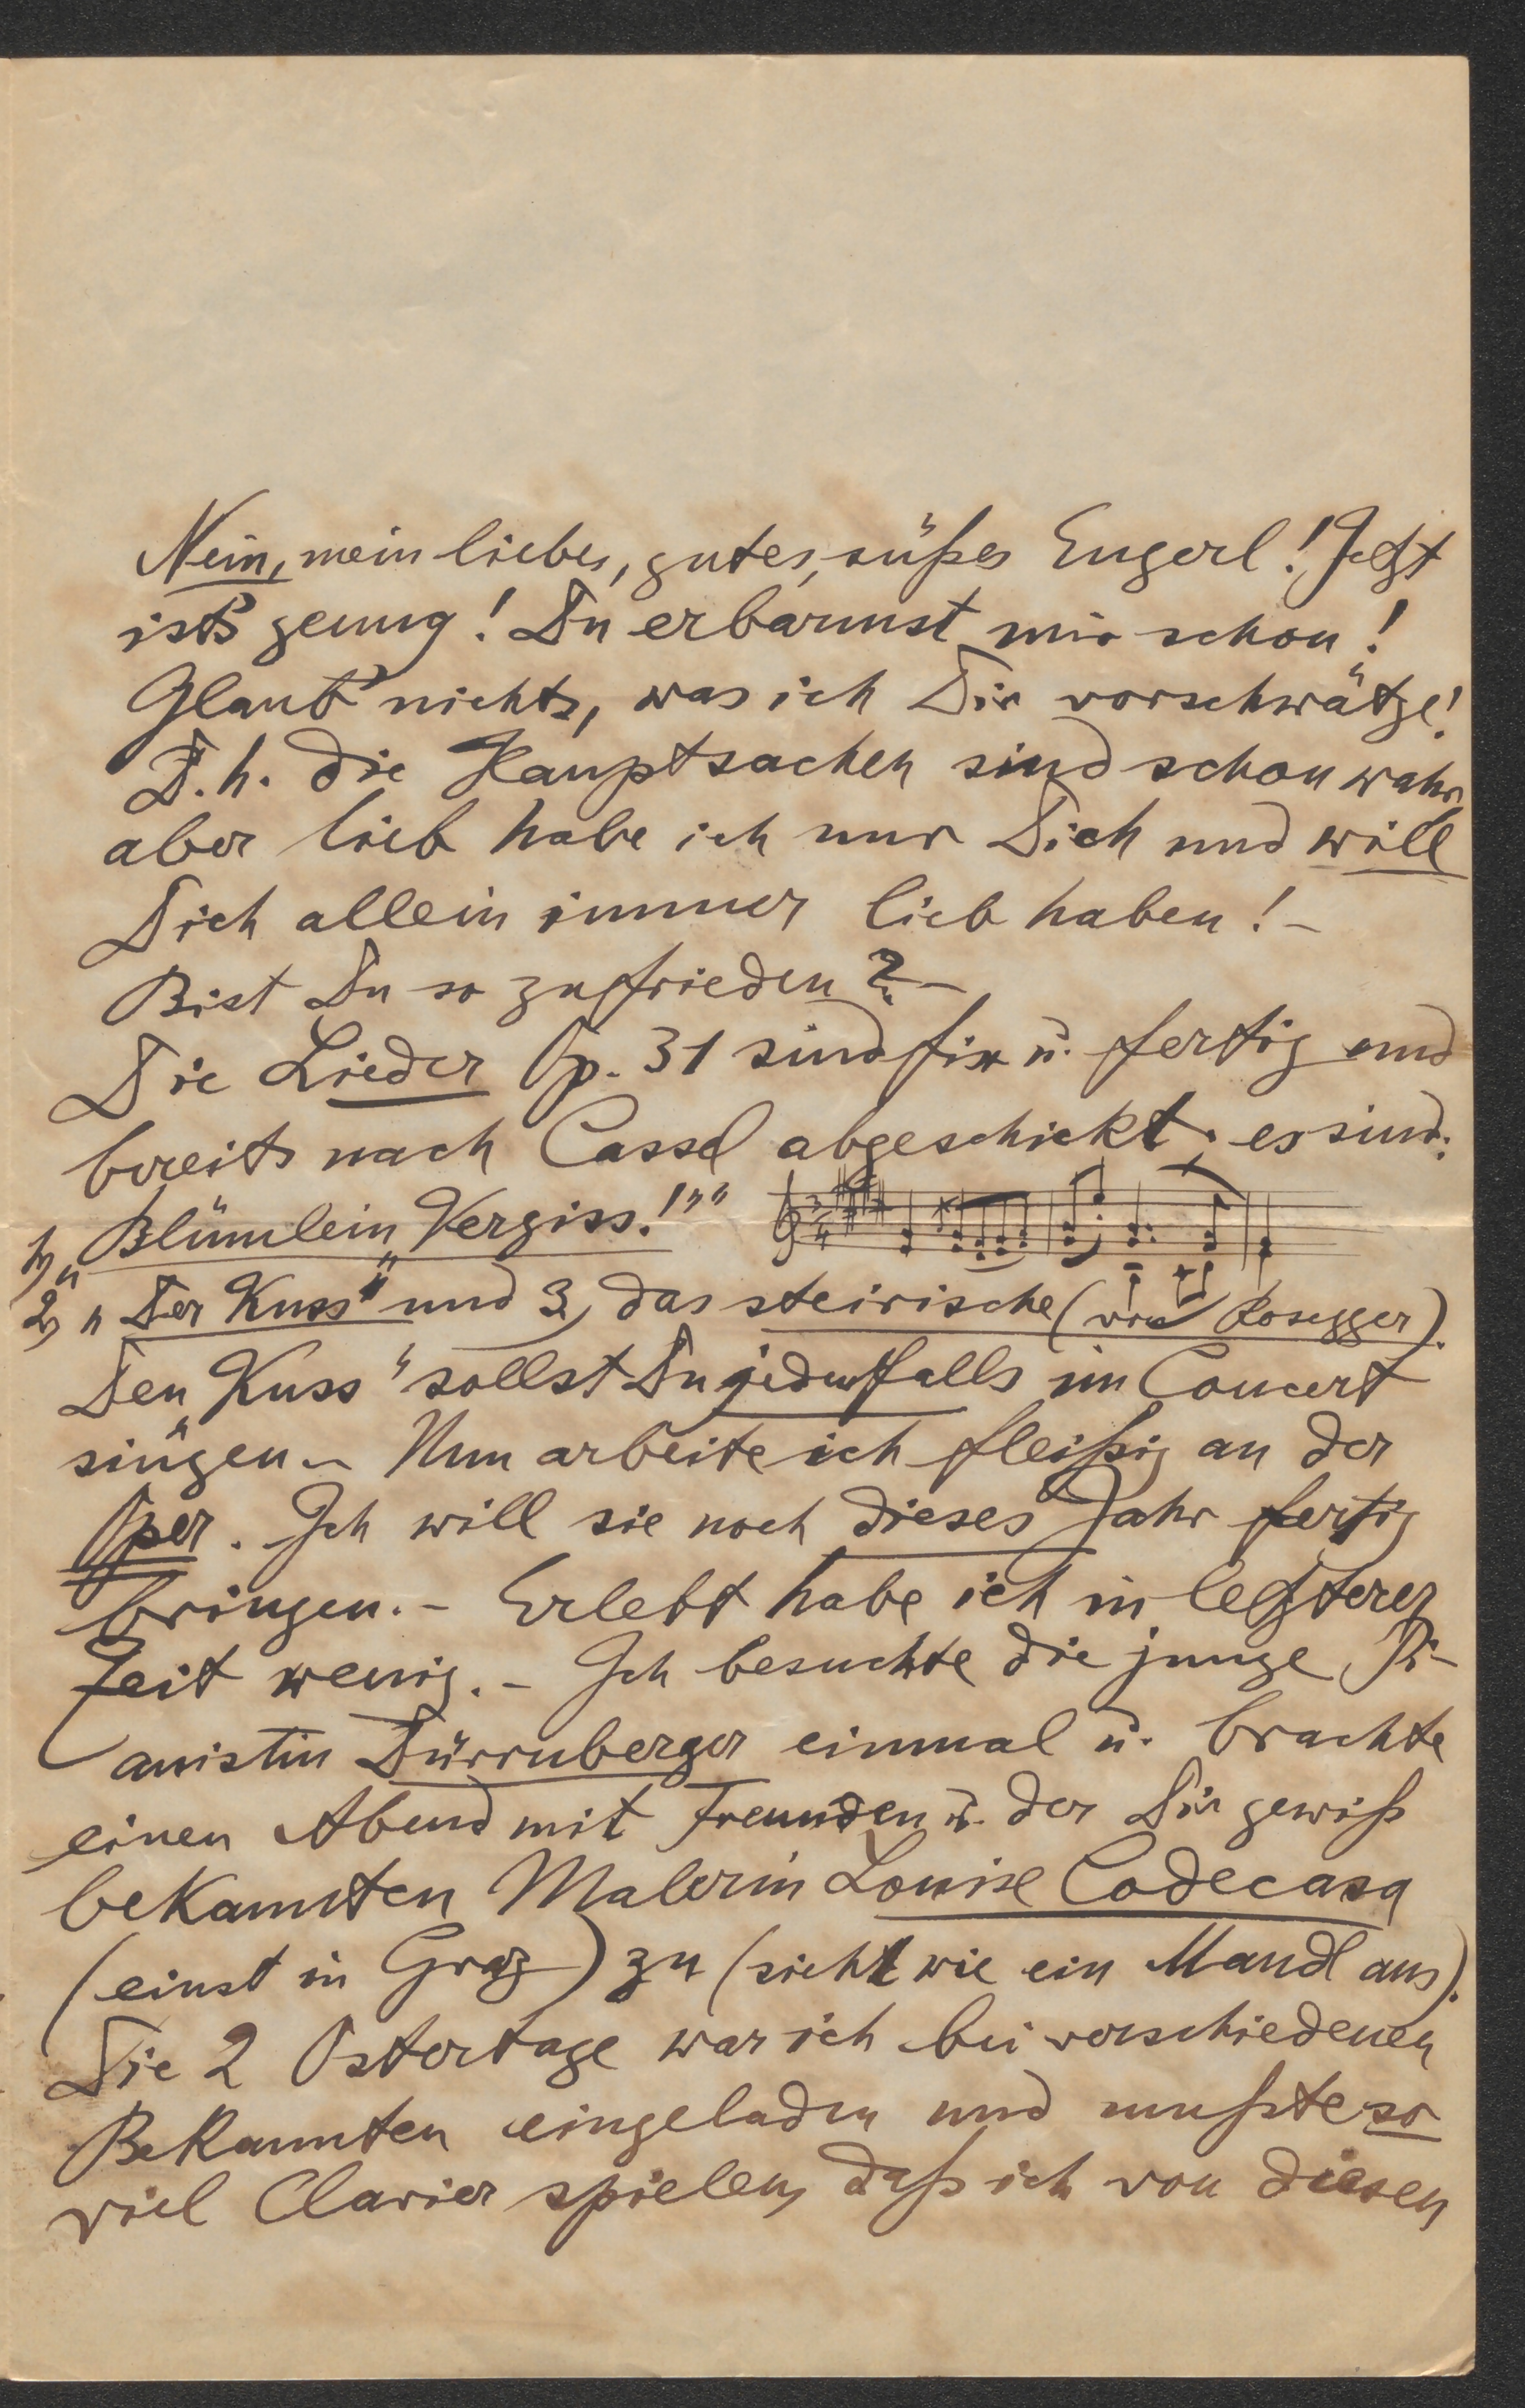 Nein, mein liebes, gutes, süßes Engerl! Jetzt
ist's genug! Du erbarmst mir schon!
Glaub' nichts, was ich Dir vorschwätze!
D. h. die Hauptsachen sind schon wahr,
aber lieb habe ich nur Dich und will
Dich allein immer lieb haben! –
Bist Du so zufrieden? –
Die Lieder Op. 31 sind fix u. fertig und
bereits nach Cassel abgeschickt; es sind:
1, „Blümlein Vergiss!""
2, „Der Kuss" und 3, das steirische (von Rosegger).
Den „Kuss" sollst Du jedenfalls im Concert
singen. – Nun arbeite ich fleißig an der
Oper. Ich will sie noch dieses Jahr fertig
bringen. – Erlebt habe ich in letzterer
Zeit wenig. – Ich besuchte die junge Pi-
anistin Dürrnberger einmal u. brachte
einen Abend mit Freunden u. der Dir gewiß
bekannten Malerin Louise Codecasa
(einst in Graz) zu (sieht wie ein Mandl aus).
Die 2 Ostertage war ich bei verschiedenen
Bekannten eingeladen und mußte so
viel Clavier spielen, daß ich von diesen